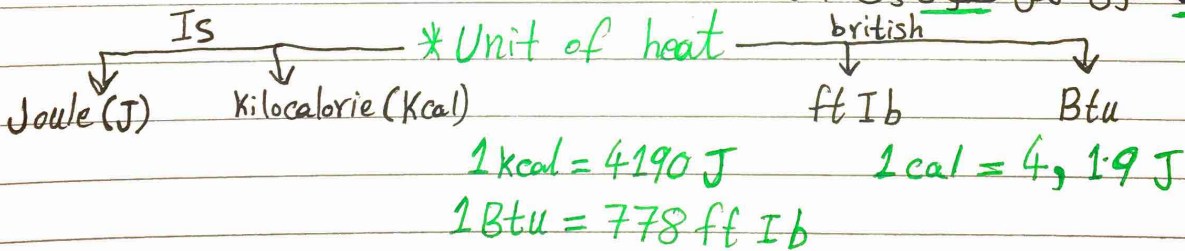 Is * Unit of heat british
Joule (J) Kilocalorie (Kcal) ft Ib Btu
1 kcal = 4190 J 1 cal = 4, 1.9 J
1 Btu = 778 ft Ib